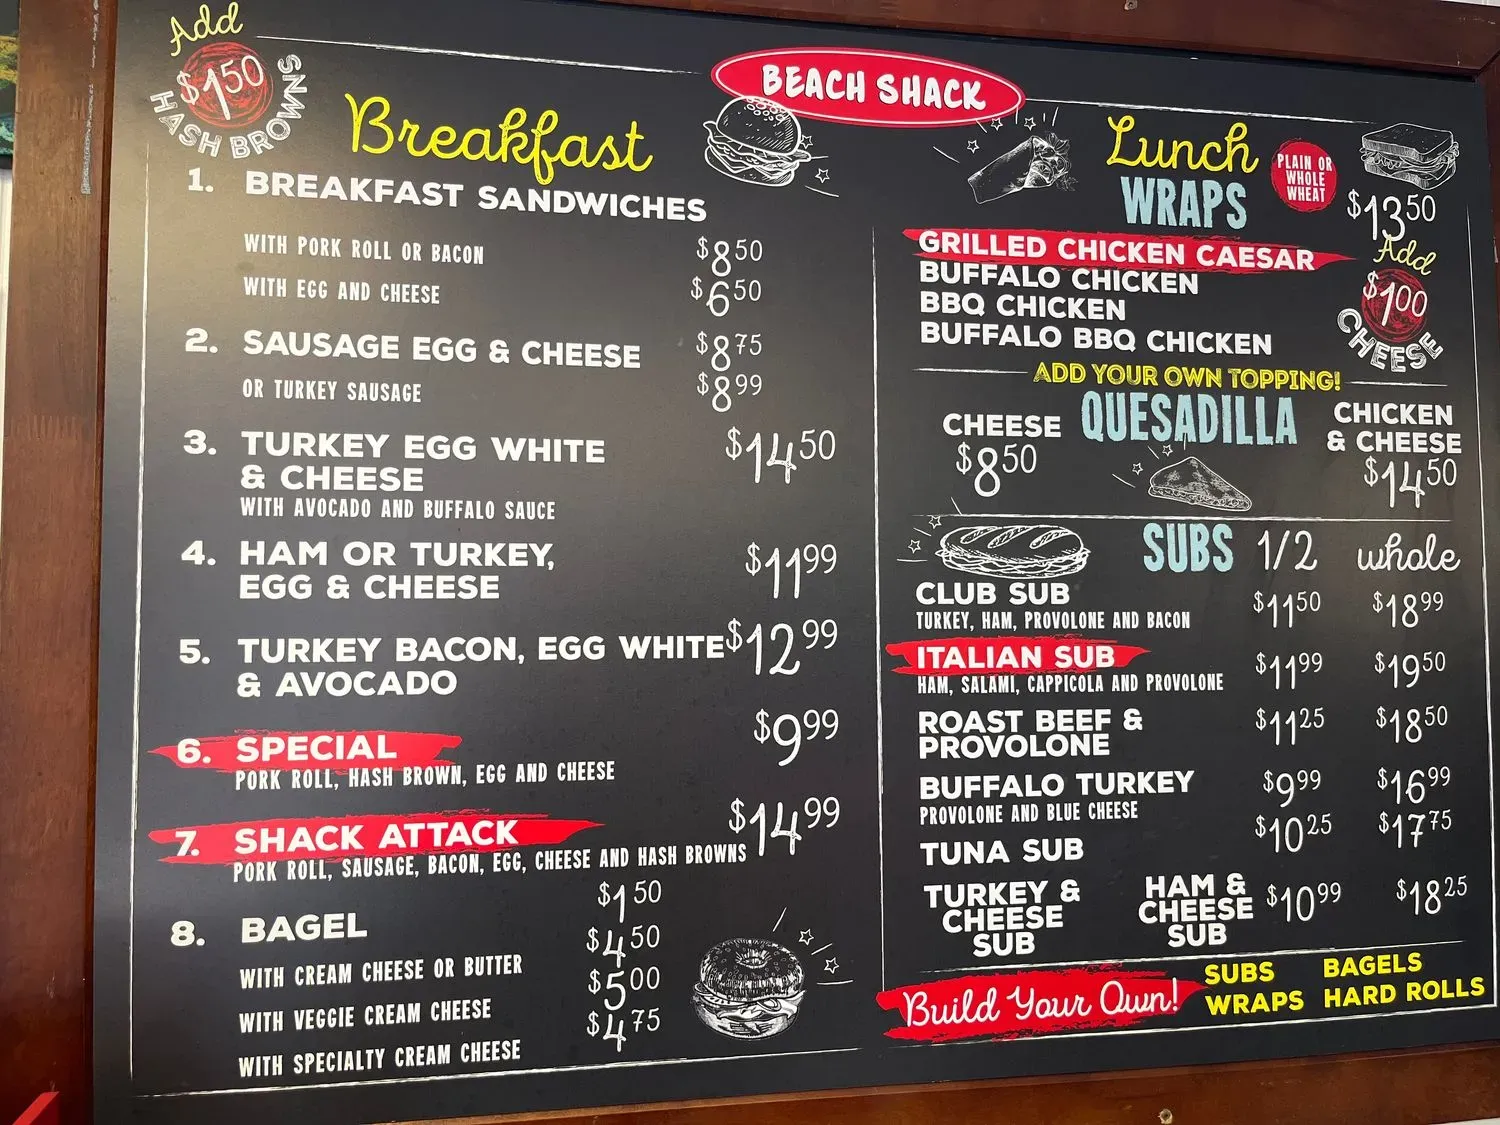 BEACH SHACK
Add
$1.50
HASH BROWNS
Breakfast
1. BREAKFAST SANDWICHES
WITH PORK ROLL OR BACON $8.50
WITH EGG AND CHEESE $6.50
2. SAUSAGE EGG & CHEESE $8.75
OR TURKEY SAUSAGE $8.99
3. TURKEY EGG WHITE $14.50
& CHEESE
WITH AVOCADO AND BUFFALO SAUCE
4. HAM OR TURKEY, $11.99
EGG & CHEESE
5. TURKEY BACON, EGG WHITE $12.99
& AVOCADO
6. SPECIAL $9.99
PORK ROLL, HASH BROWN, EGG AND CHEESE
7. SHACK ATTACK $14.99
PORK ROLL, SAUSAGE, BACON, EGG, CHEESE AND HASH BROWNS
8. BAGEL $1.50
WITH CREAM CHEESE OR BUTTER $4.50
WITH VEGGIE CREAM CHEESE $5.00
WITH SPECIALTY CREAM CHEESE $4.75
Lunch
WRAPS
PLAIN OR
WHOLE
WHEAT
$13.50
GRILLED CHICKEN CAESAR
BUFFALO CHICKEN
BBQ CHICKEN
BUFFALO BBQ CHICKEN
Add
$1.00
CHEESE
ADD YOUR OWN TOPPING!
QUESADILLA
CHEESE
$8.50
CHICKEN
& CHEESE
$14.50
SUBS 1/2 whole
CLUB SUB $11.50 $18.99
TURKEY, HAM, PROVOLONE AND BACON
ITALIAN SUB $11.99 $19.50
HAM, SALAMI, CAPPICOLA AND PROVOLONE
ROAST BEEF & $11.25 $18.50
PROVOLONE
BUFFALO TURKEY $9.99 $16.99
PROVOLONE AND BLUE CHEESE
TUNA SUB $10.25 $17.75
TURKEY &
CHEESE
SUB
HAM &
CHEESE
SUB
$10.99 $18.25
Build Your Own!
SUBS BAGELS
WRAPS HARD ROLLS